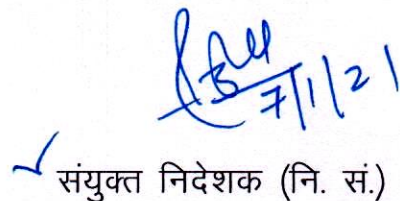 7/1/21
संयुक्त निदेशक (नि. सं.)